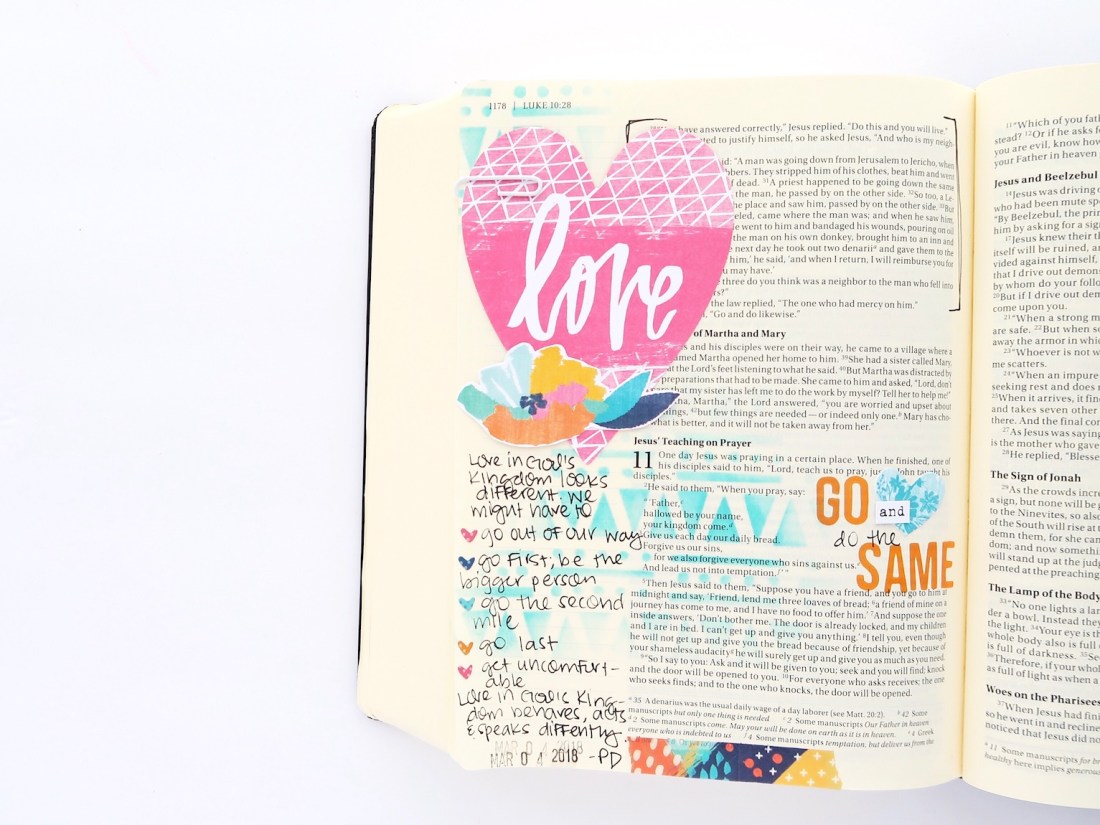 1178 | LUKE 10:28
love
Love in God's
Kingdom looks
different. we
might have to
go out of our way
go first; be the
bigger person
go the second
mile
go last
get uncomfort-
able
Love in God's King-
dom behaves, acts
& speaks differntly.
MAR 0 4 2018
MAR 0 4 2018 -PD
have answered correctly," Jesus replied. "Do this and you will live."
to justify himself, so he asked Jesus, "And who is my neigh-
"A man was going down from Jerusalem to Jericho, when
They stripped him of his clothes, beat him and went
dead. 31A priest happened to be going down the same
the man, he passed by on the other side. 32So too, a Le-
place and saw him, passed by on the other side. 33But
came where the man was; and when he saw him,
went to him and bandaged his wounds, pouring on oil
the man on his own donkey, brought him to an inn and
next day he took out two denarii and gave them to the
him,' he said, 'and when I return, I will reimburse you for
may have.'
three do you think was a neighbor to the man who fell into
the law replied, "The one who had mercy on him."
"Go and do likewise."
of Martha and Mary
and his disciples were on their way, he came to a village where a
named Martha opened her home to him. 39She had a sister called Mary,
at the Lord's feet listening to what he said. 40But Martha was distracted by
preparations that had to be made. She came to him and asked, "Lord, don't
that my sister has left me to do the work by myself? Tell her to help me!"
Martha," the Lord answered, "you are worried and upset about
42but few things are needed — or indeed only one. Mary has cho-
what is better, and it will not be taken away from her."
Jesus' Teaching on Prayer
11 One day Jesus was praying in a certain place. When he finished, one of
his disciples said to him, "Lord, teach us to pray, just John taught his
disciples."
2He said to them, "When you pray, say:
"'Father,
hallowed be your name,
your kingdom come.
Give us each day our daily bread.
Forgive us our sins,
for we also forgive everyone who sins against us.
And lead us not into temptation.'"
GO and
do the
SAME
5Then Jesus said to them, "Suppose you have a friend, and you go to him at
midnight and say, 'Friend, lend me three loaves of bread; 6a friend of mine on a
journey has come to me, and I have no food to offer him.' 7And suppose the one
inside answers, 'Don't bother me. The door is already locked, and my children
and I are in bed. I can't get up and give you anything.' 8I tell you, even though
he will not get up and give you the bread because of friendship, yet because of
your shameless audacity he will surely get up and give you as much as you need.
9"So I say to you: Ask and it will be given to you; seek and you will find; knock
and the door will be opened to you. 10For everyone who asks receives; the one
who seeks finds; and to the one who knocks, the door will be opened.
35 A denarius was the usual daily wage of a day laborer (see Matt. 20:2). 42 Some
manuscripts but only one thing is needed 2 Some manuscripts Our Father in heaven
2 Some manuscripts come. May your will be done on earth as it is in heaven. 4 Greek
everyone who is indebted to us 4 Some manuscripts temptation, but deliver us from the
11"Which of you fat
stead? 12Or if he asks f
you are evil, know how
your Father in heaven
Jesus and Beelzebul
14Jesus was driving o
who had been mute spo
"By Beelzebul, the prin
him by asking for a sig
17Jesus knew their th
itself will be ruined, an
vided against himself,
that I drive out demon
by whom do your follow
20But if I drive out dem
come upon you.
21"When a strong m
are safe. 22But when so
away the armor in whic
23"Whoever is not w
me scatters.
24"When an impure
seeking rest and does n
25When it arrives, it fin
and takes seven other
there. And the final con
27As Jesus was saying
is the mother who gave
28He replied, "Blesse
The Sign of Jonah
29As the crowds incre
a sign, but none will be g
to the Ninevites, so also
of the South will rise at t
demn them, for she cam
dom; and now somethi
will stand up at the judg
pented at the preaching
The Lamp of the Body
33"No one lights a lam
der a bowl. Instead they
the light. 34Your eye is th
whole body also is full o
is full of darkness. 35Se
36Therefore, if your whol
as full of light as when a
Woes on the Pharisees
37When Jesus had fini
so he went in and reclin
noticed that Jesus did no
11 Some manuscripts for br
healthy here implies generous